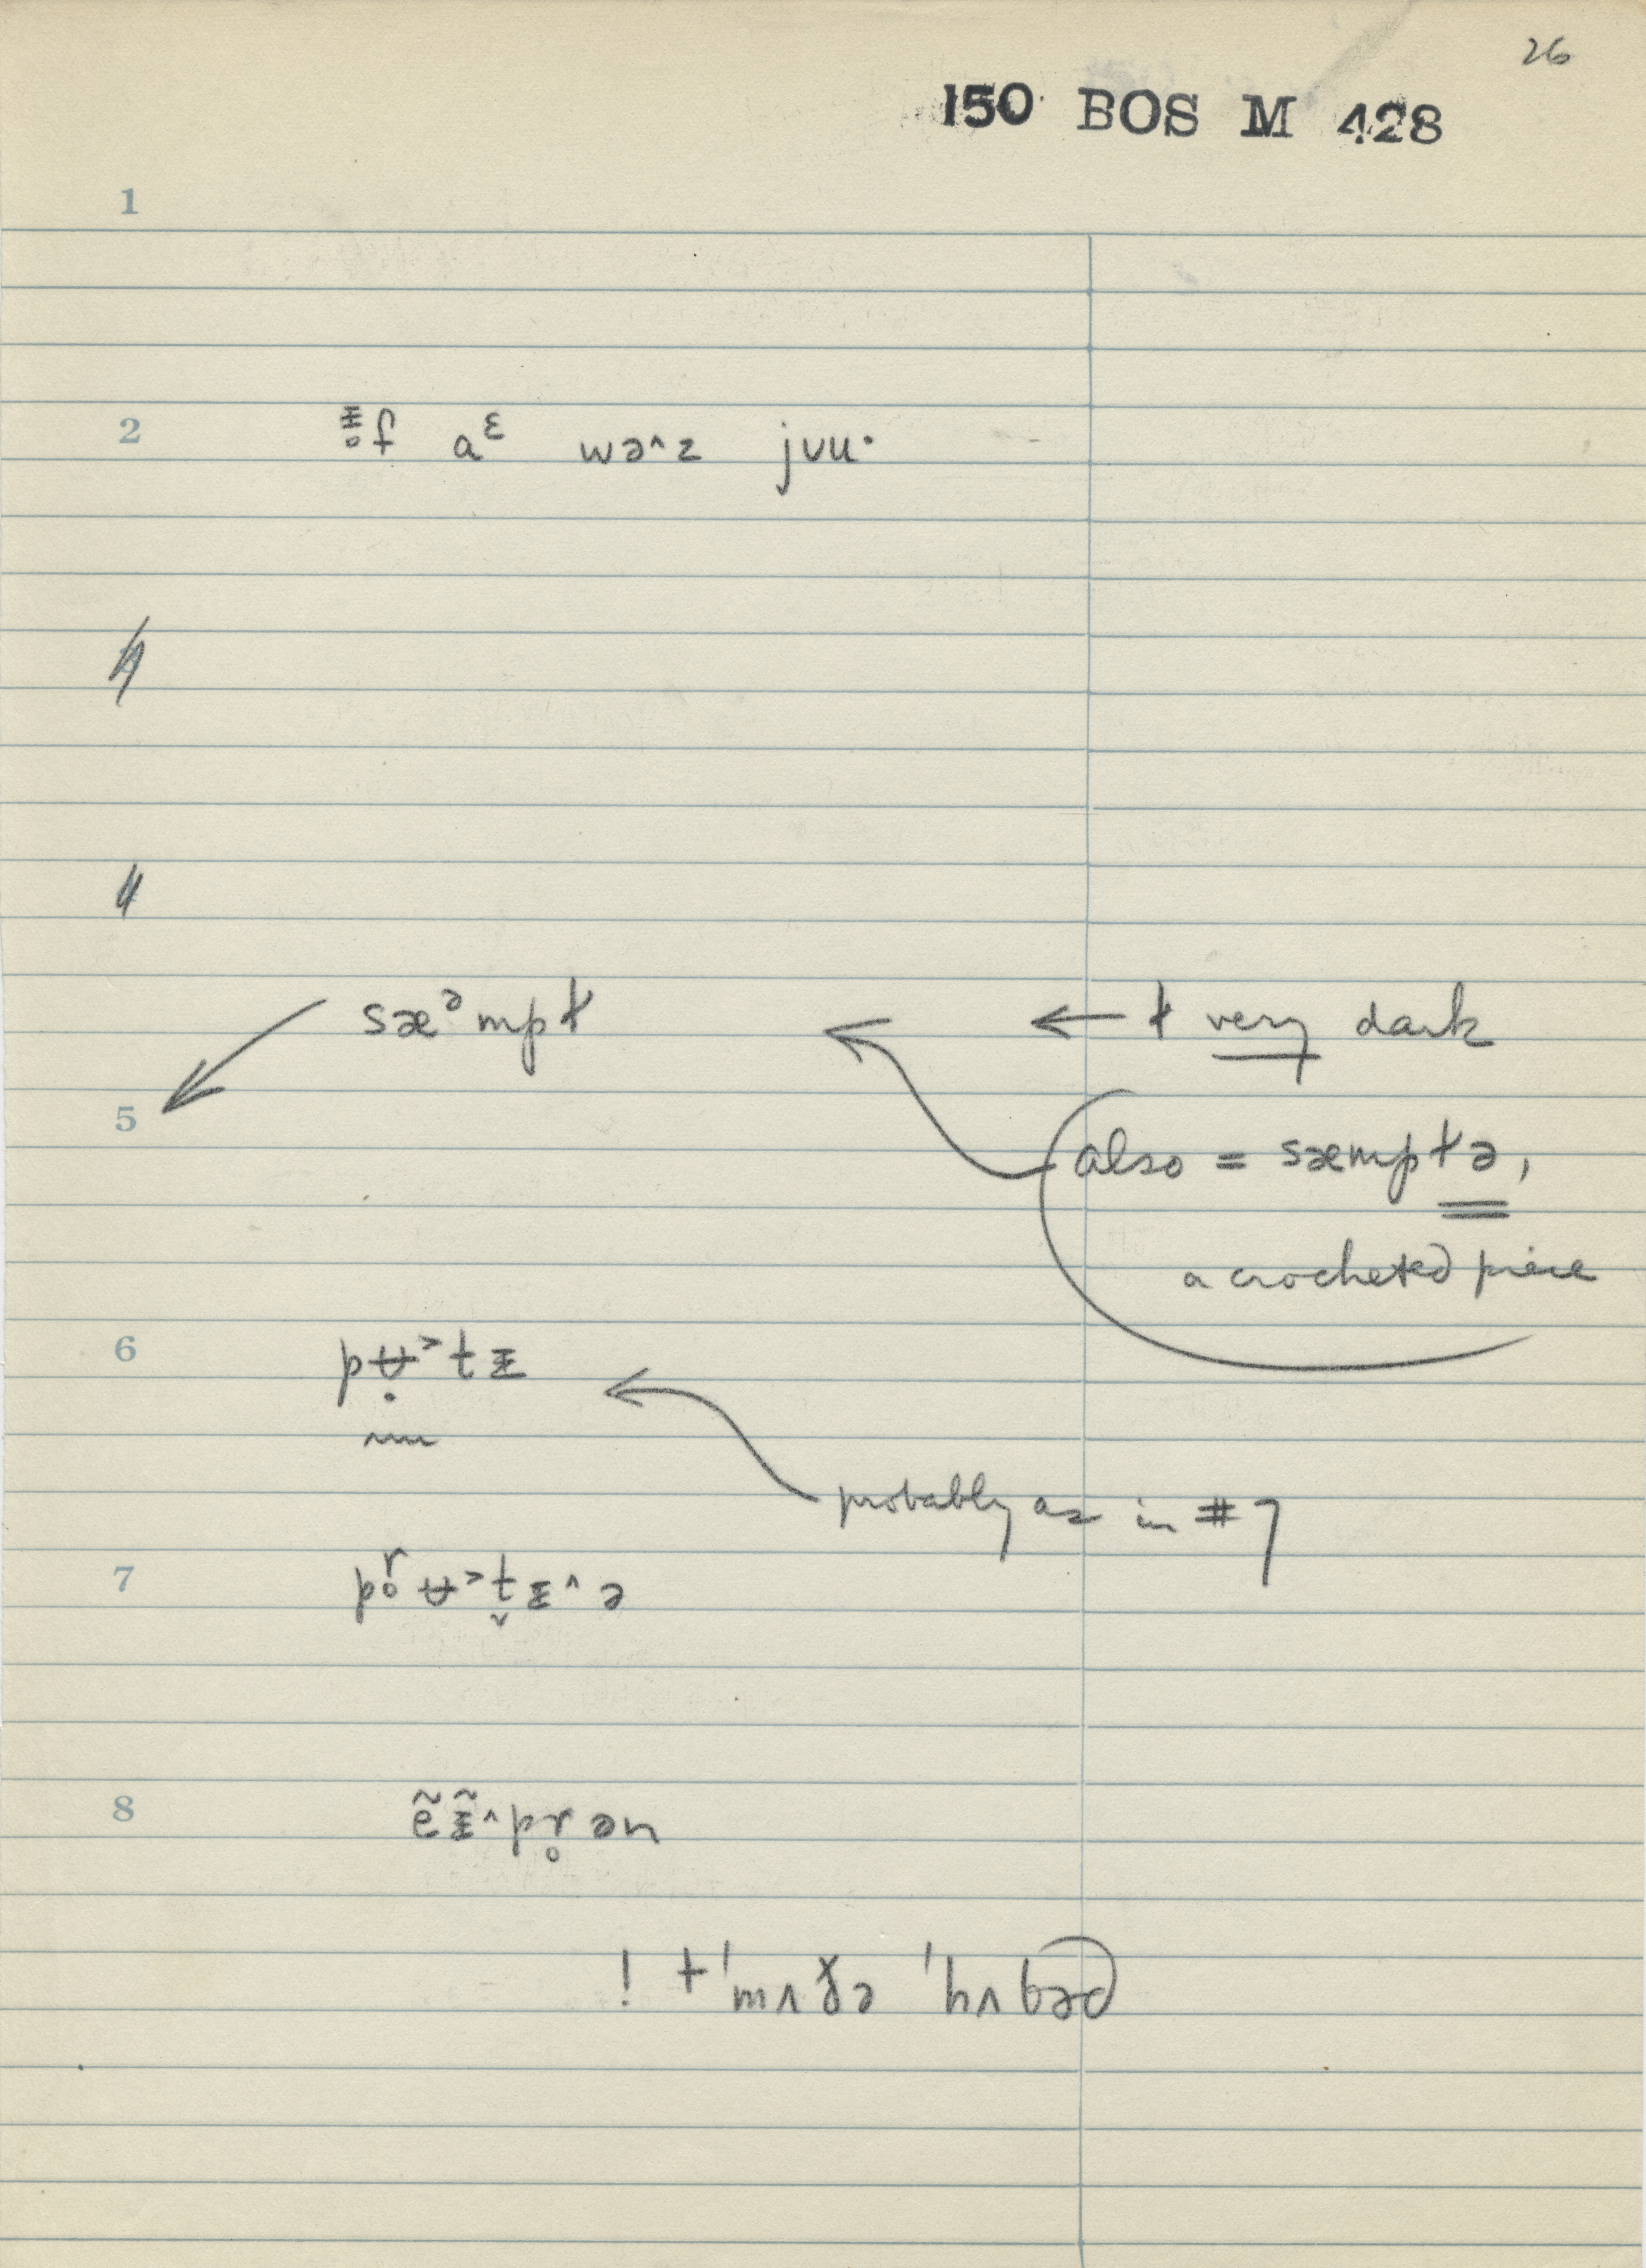 26
150 BOS M 428
1
2 ᵻ̥f aᵋ wə˄z jʊu·
sæᵊmpɫ ← ɫ very dark
5 also = sæmpɫə,
a crocheted piece
6 pʉ̣˃tᵻ
probably as in #7
7 pr̥ʉ˃t̬ᵻ˄ə
8 ẽᵻ̃˄pr̥ən